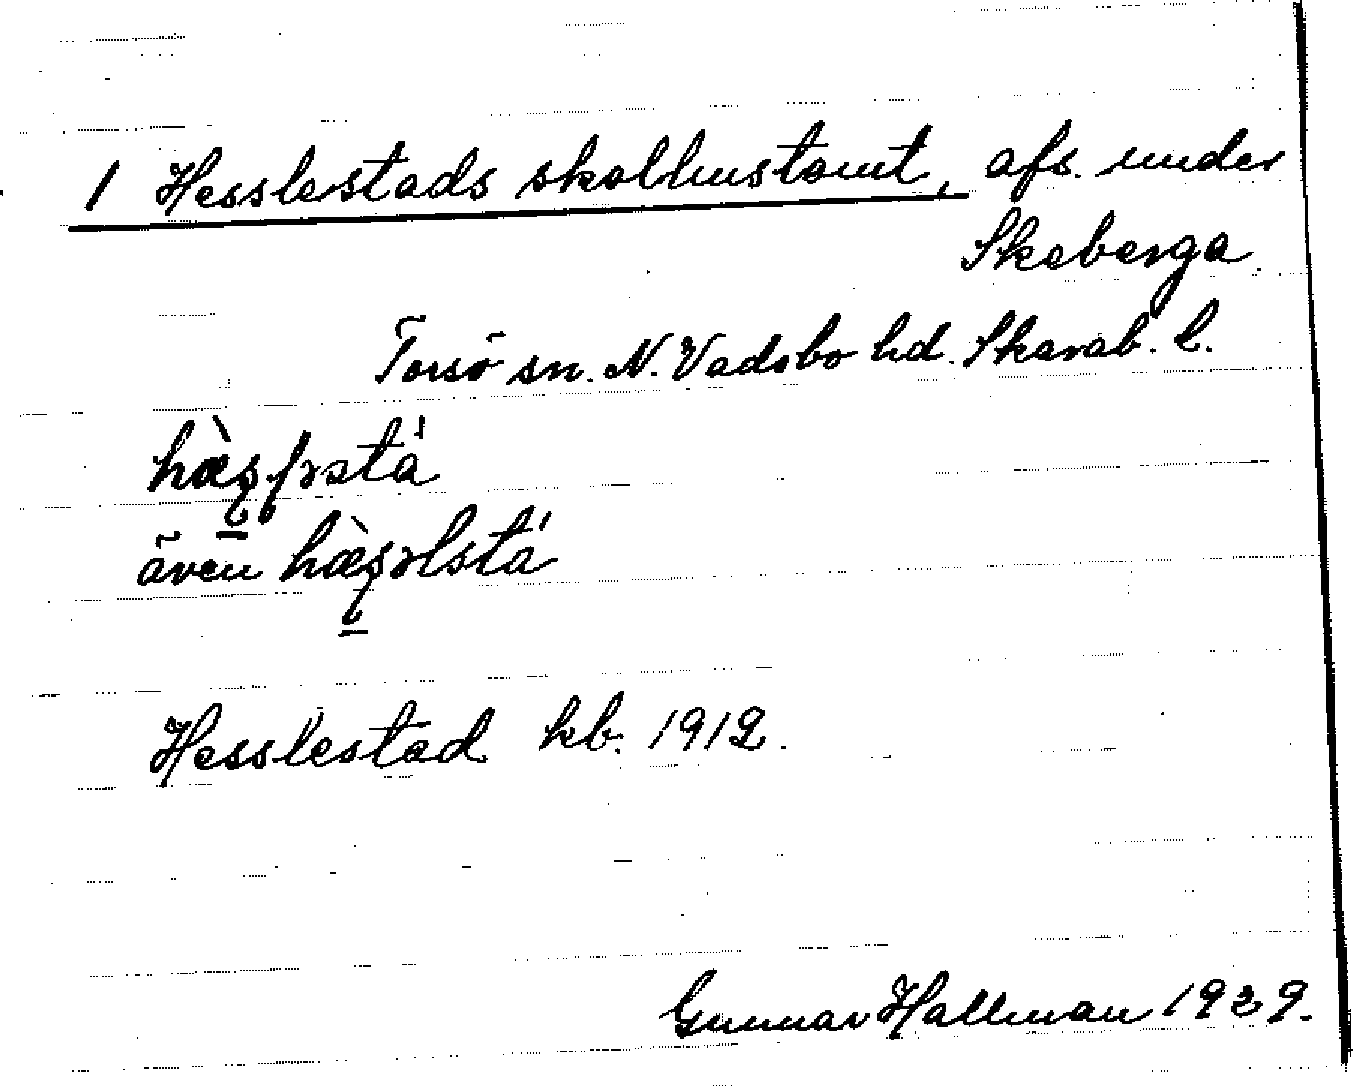 1 Hesslestads skolhustomt, afs. under
Skeberga.
Torsö sn. N. Vadsbo hd. Skarab. l.
även
Hesslestad kb. 1912.
Gunnar Hallman 1929.